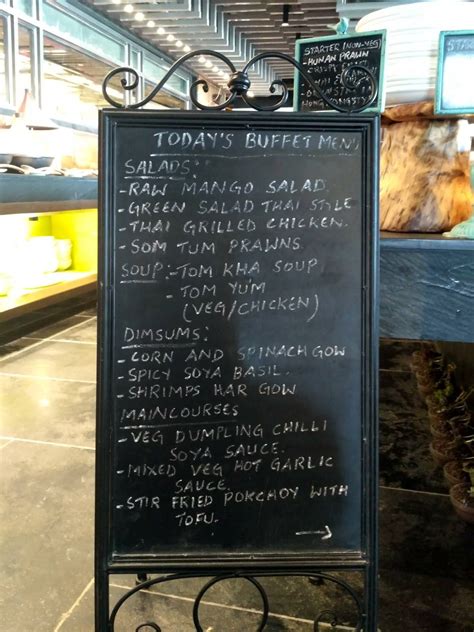 STARTER (NON-VEG)
- HUNAN PRAWN
TODAY'S BUFFET MENU
SALADS:
- RAW MANGO SALAD.
- GREEN SALAD THAI STYLE
- THAI GRILLED CHICKEN.
- SOM TUM PRAWNS.
SOUP :- TOM KHA SOUP
- TOM YUM
(VEG/CHICKEN)
DIMSUMS:
- CORN AND SPINACH GOW
- SPICY SOYA BASIL.
- SHRIMPS HAR GOW
MAINCOURSES
- VEG DUMPLING CHILLI
SOYA SAUCE.
- MIXED VEG HOT GARLIC
SAUCE.
- STIR FRIED POKCHOY WITH
TOFU.